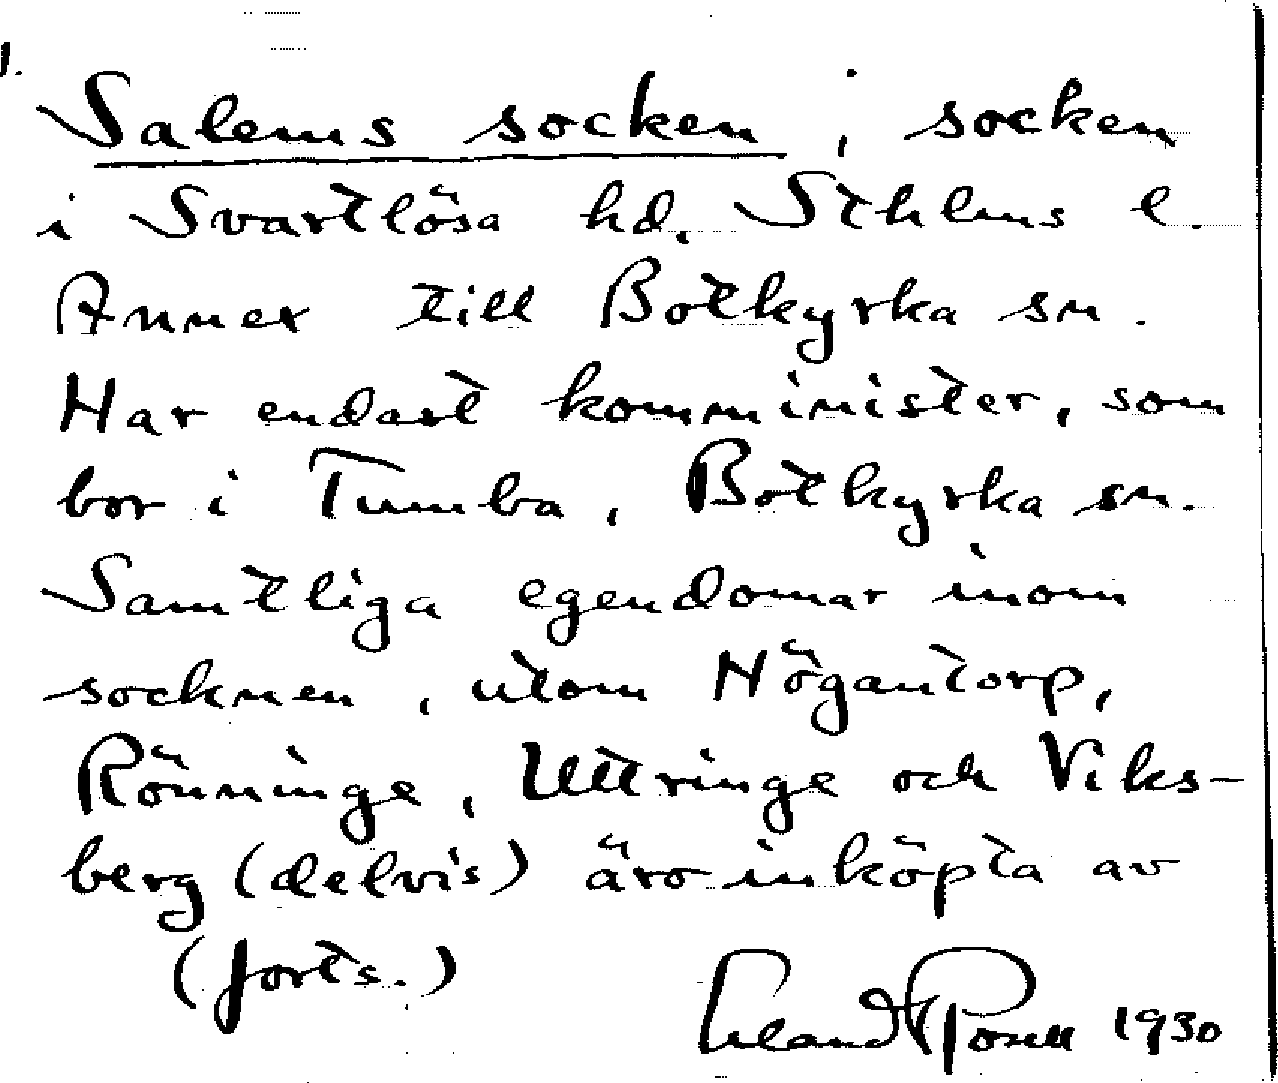 1.
Salems socken, socken
i Svartlösa hd. Sthlms l.
Annex till Botkyrka sn.
Har endast komminister, som
bor i Tumba, Botkyrka sn.
Samtliga egendomar inom
socknen, utom Högantorp,
Rönninge, Uttringe och Viks-
berg (delvis) äro inköpta av
(forts.)
Erland Rosell 1930